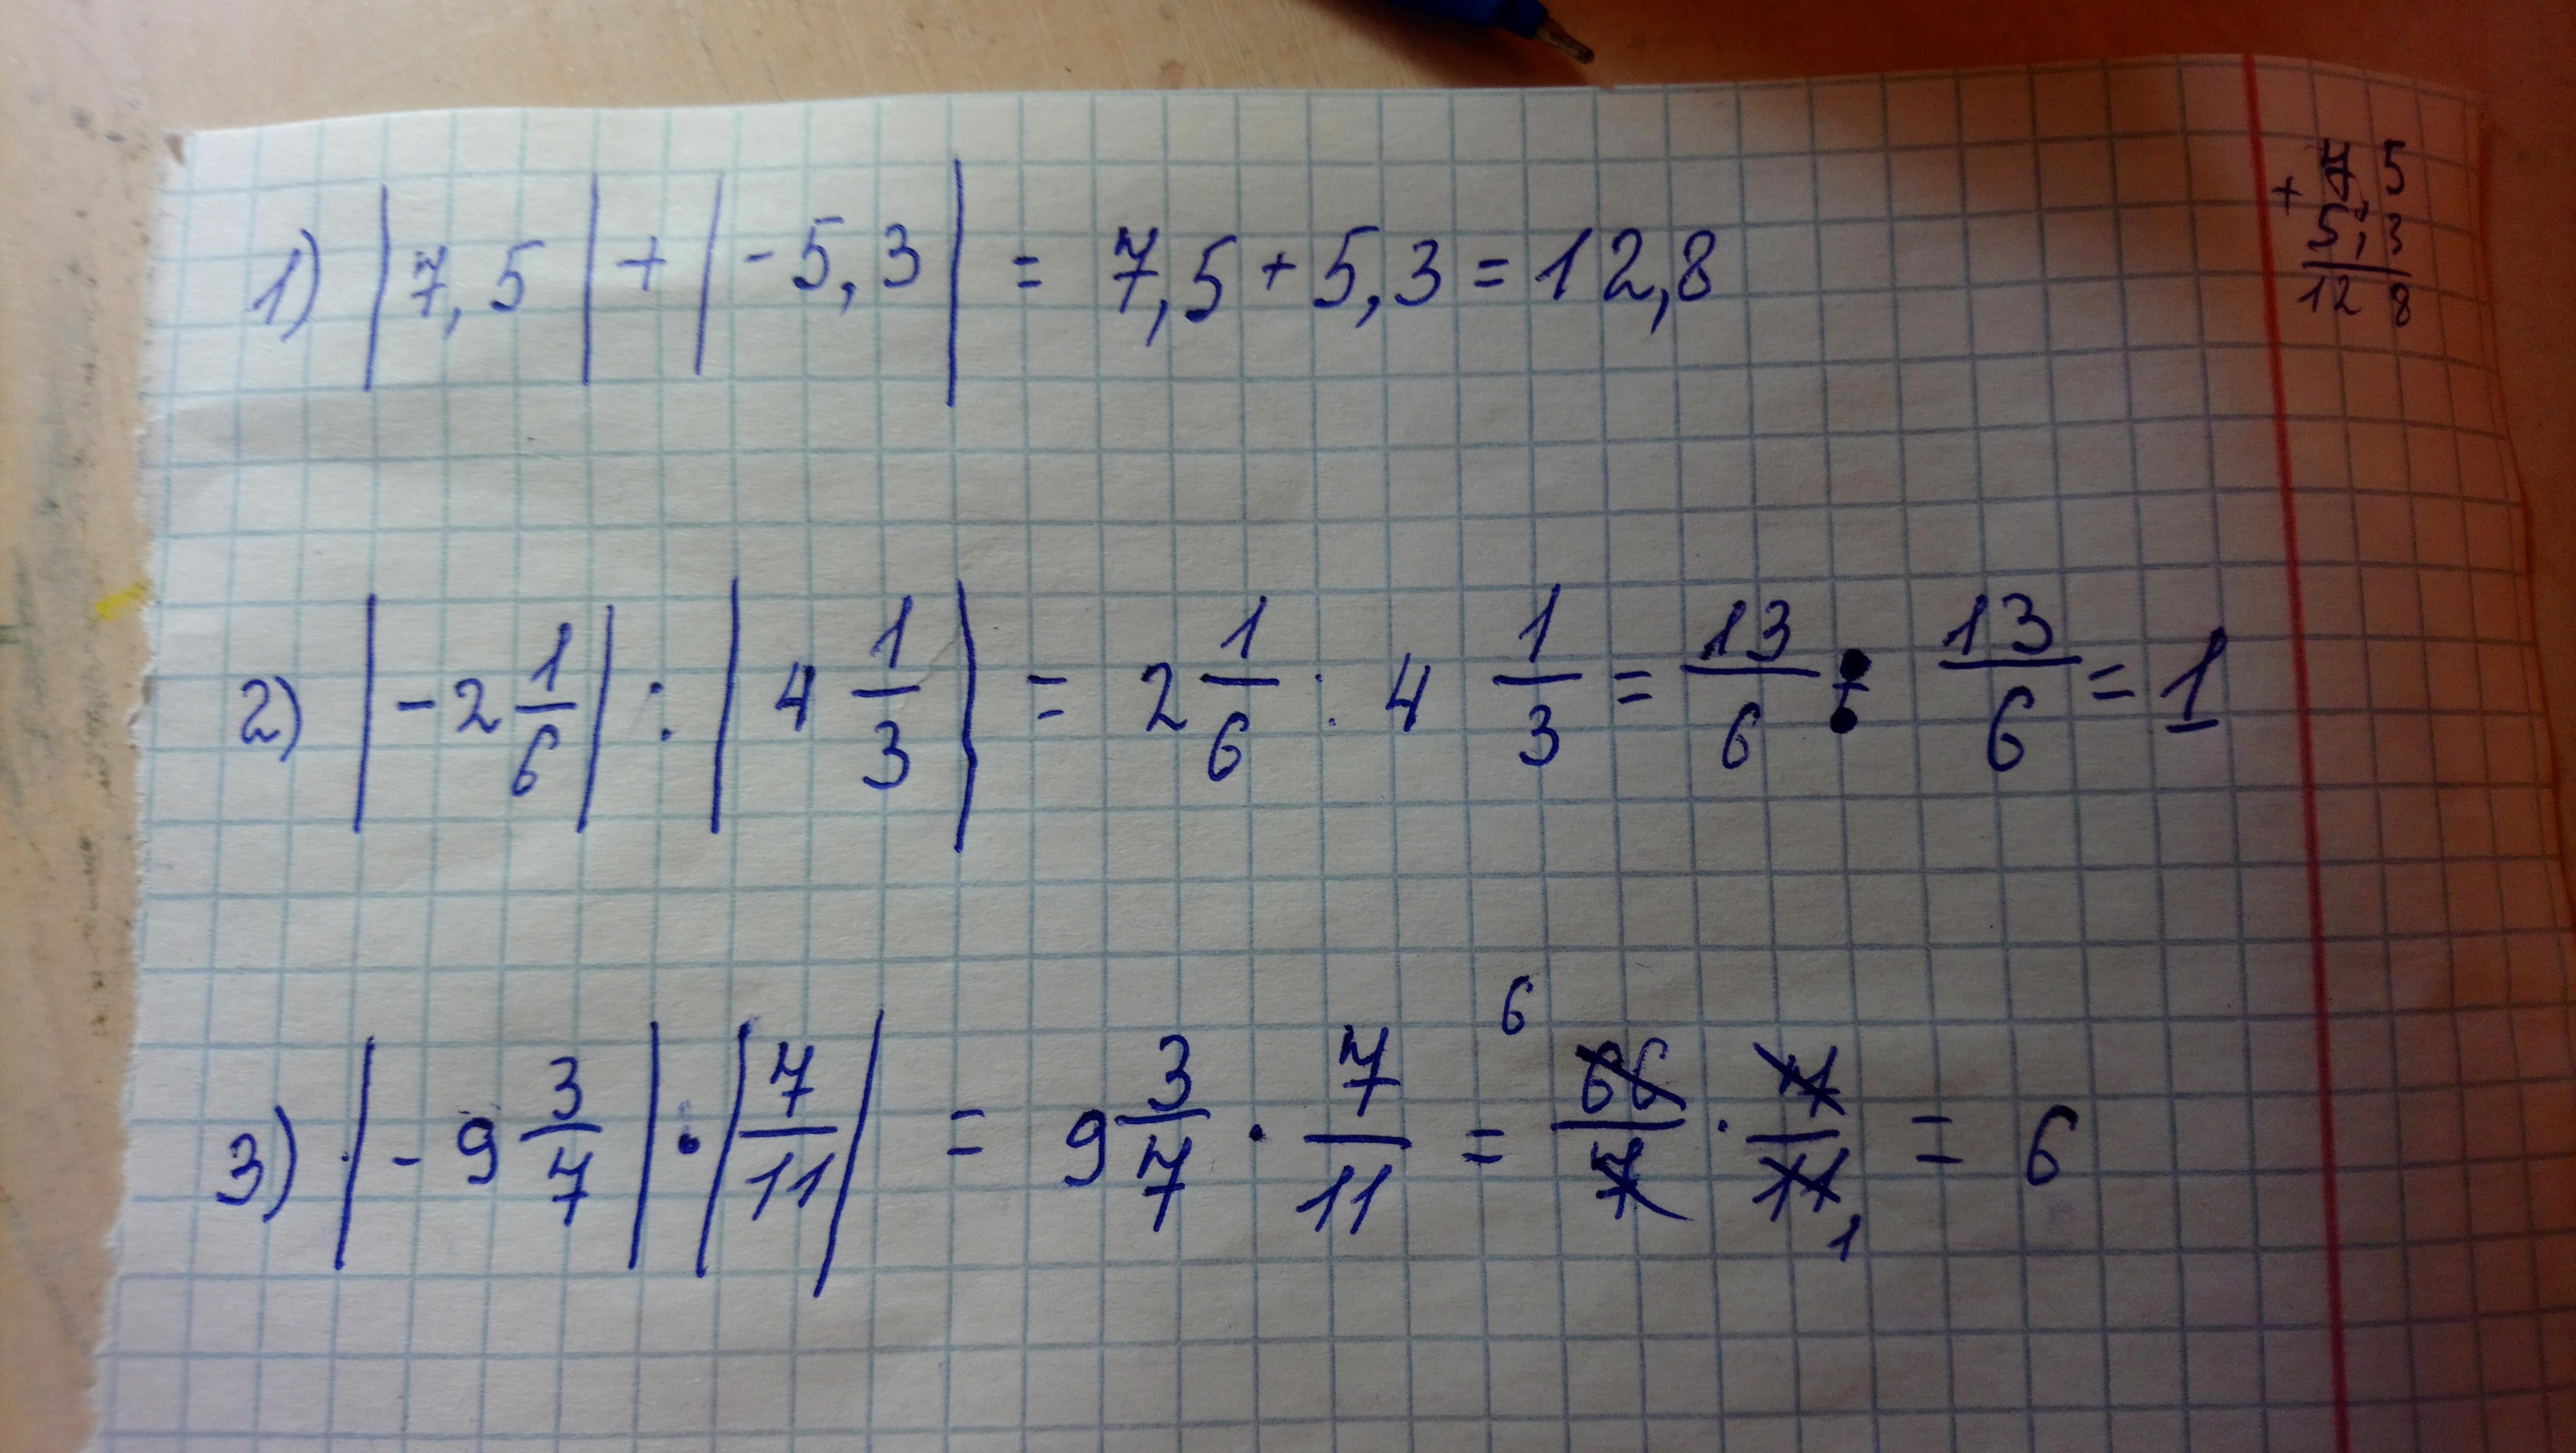 1) |7,5| + |-5,3| = 7,5 + 5,3 = 12,8
+ 7 5
5,3
12 8
2) |-2 1/6| : |4 1/3| = 2 1/6 : 4 1/3 = 13/6 : 13/6 = 1
3) |-9 3/7| · |7/11| = 9 3/7 · 7/11 = 6 66/7 · 7/11 1 = 6